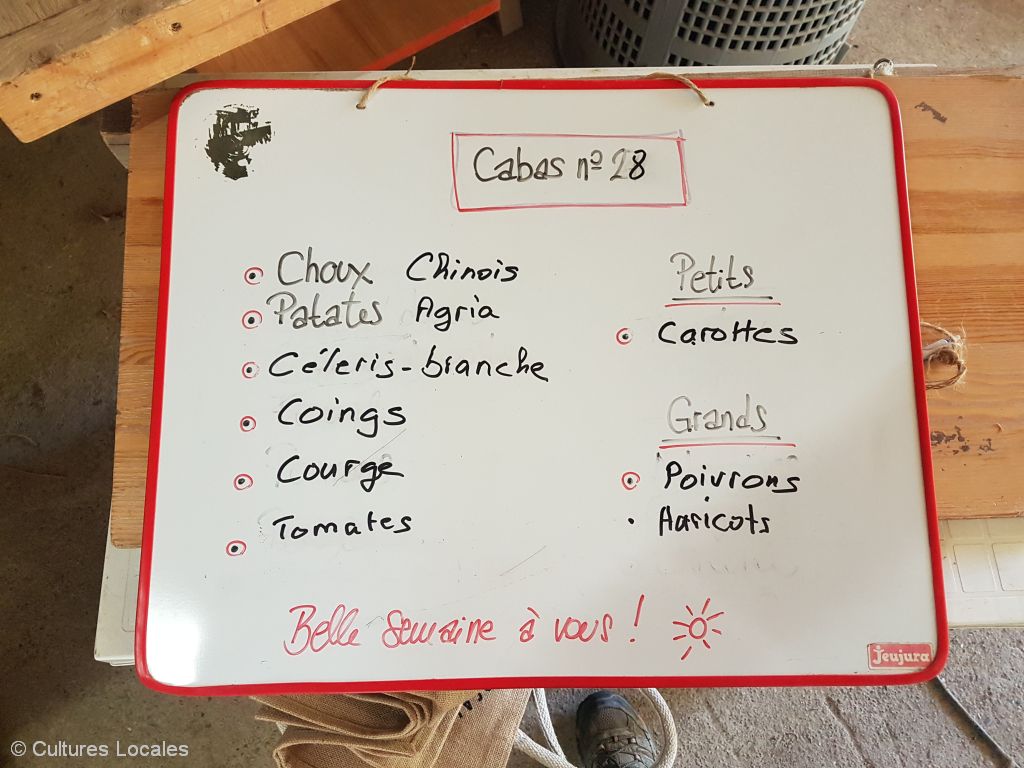 Cabas nº 28
Choux Chinois
Patates Agria
Céleris-branche
Coings
Courge
Tomates
Petits
Carottes
Grands
Poivrons
Haricots
Belle semaine à vous !
Jeujura
© Cultures Locales